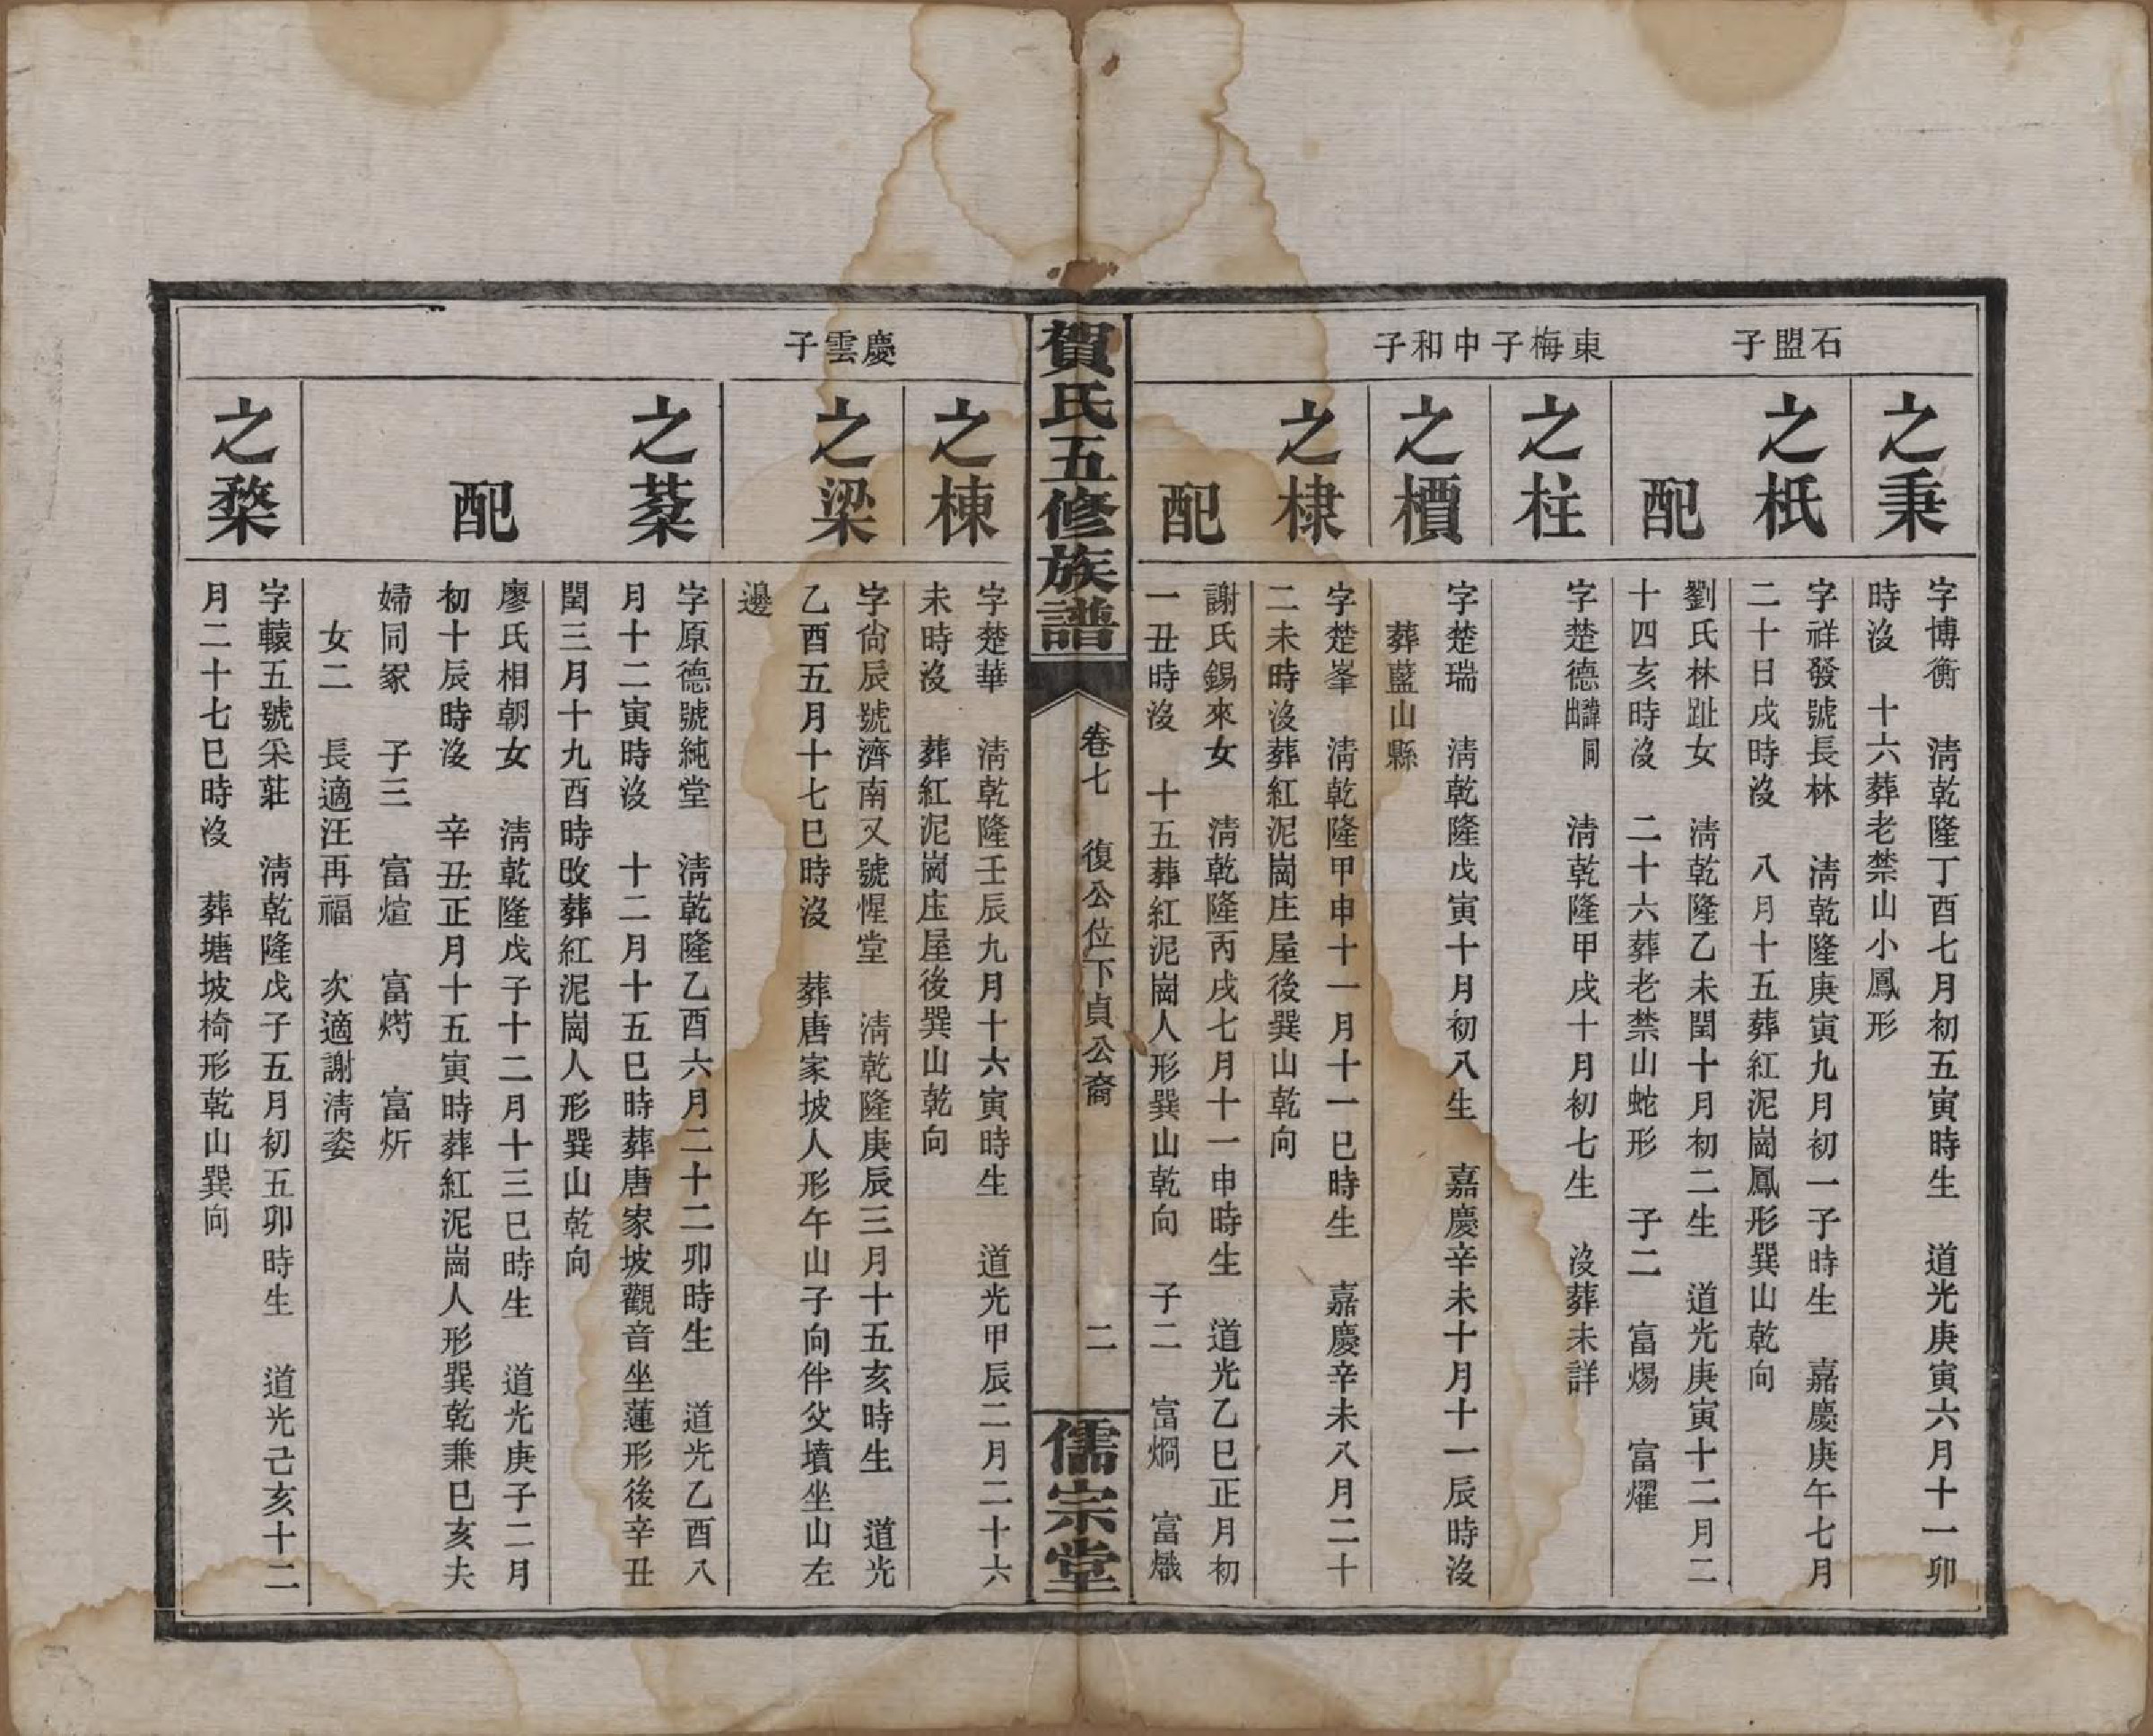 石盟子
之秉
字博衡　淸乾隆丁酉七月初五寅時生　道光庚寅六月十一卯
時沒　十六葬老禁山小鳳形
之秖
字祥發號長林　淸乾隆庚寅九月初一子時生　嘉慶庚午七月
二十日戌時沒　八月十五葬紅泥崗鳳形巽山乾向
配
劉氏林趾女　淸乾隆乙未閏十月初二生　道光庚寅十二月二
十四亥時沒　二十六葬老禁山蛇形　子二　富煬　富燿
東梅子
之柱
字楚德諱同　淸乾隆甲戌十月初七生　沒葬未詳
中和子
之檟
字楚瑞　淸乾隆戊寅十月初八生　嘉慶辛未十月十一辰時沒
葬藍山縣
之棣
字楚峯　淸乾隆甲申十一月十一巳時生　嘉慶辛未八月二十
二未時沒葬紅泥崗庄屋後巽山乾向
配
謝氏錫來女　淸乾隆丙戌七月十一申時生　道光乙巳正月初
一丑時沒　十五葬紅泥崗人形巽山乾向　子二　富烱　富熾
賀氏五修族譜
卷七　復公位下貞公裔　二
儒宗堂
慶雲子
之棟
字楚華　淸乾隆壬辰九月十六寅時生　道光甲辰二月二十六
未時沒　葬紅泥崗庄屋後巽山乾向
之梁
字尙辰號濟南又號惺堂　淸乾隆庚辰三月十五亥時生　道光
乙酉五月十七巳時沒　葬唐家坡人形午山子向伴父墳坐山左
邊
之棻
字原德號純堂　淸乾隆乙酉六月二十二卯時生　道光乙酉八
月十二寅時沒　十二月十五巳時葬唐家坡觀音坐蓮形後辛丑
閏三月十九酉時改葬紅泥崗人形巽山乾向
配
廖氏相朝女　淸乾隆戊子十二月十三巳時生　道光庚子二月
初十辰時沒　辛丑正月十五寅時葬紅泥崗人形巽乾兼巳亥夫
婦同冢　子三　富煊　富焫　富炘
女二　長適汪再福　次適謝淸姿
之棃
字轅五號采莊　淸乾隆戊子五月初五卯時生　道光己亥十二
月二十七巳時沒　葬塘坡椅形乾山巽向